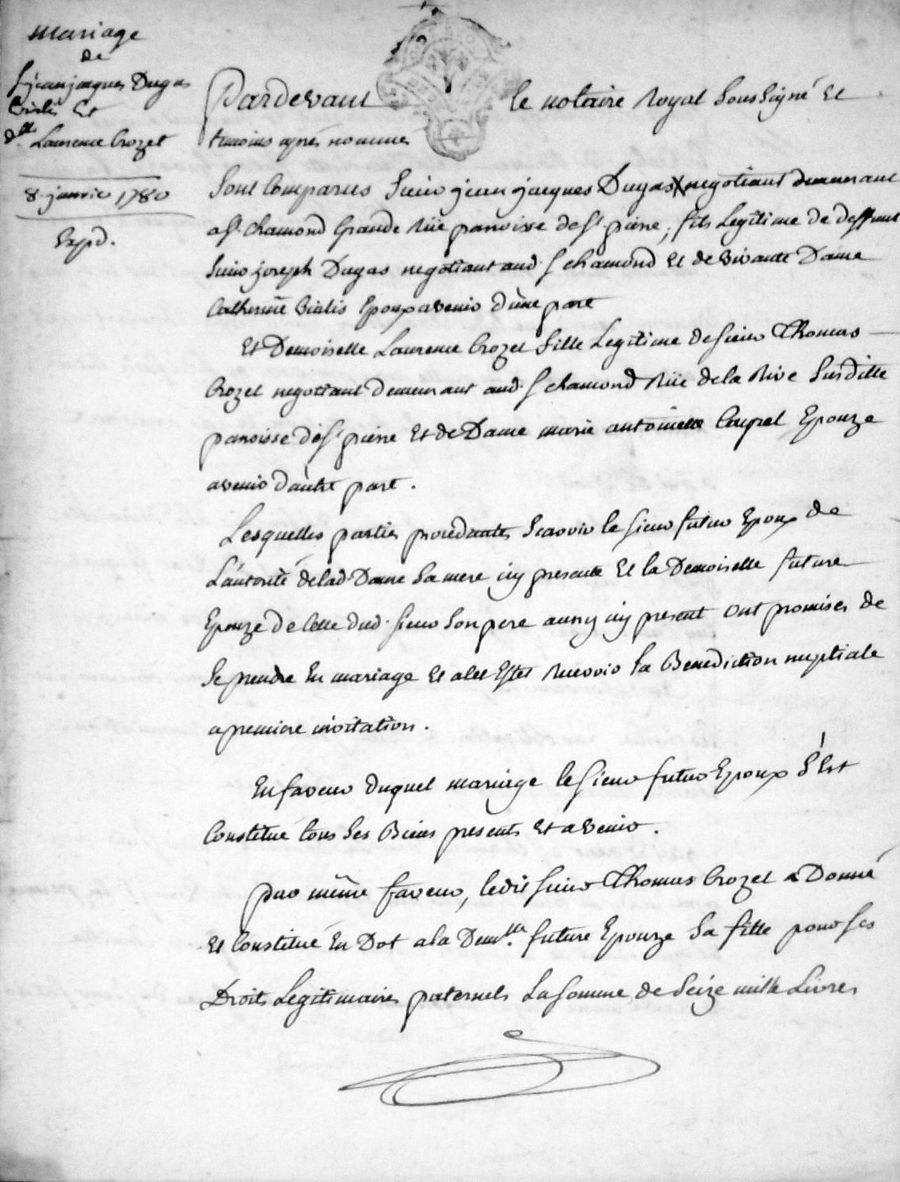 Mariage
de
Sr jean jacques Dugas
Vialis Et
dlle Laurence Crozet
8 janvier 1780
Expd.
Pardevant le notaire Royal Soussigné Et
temoins aprés nommés
Sont Comparus Sieur jean jacques Dugas negotiant demeurant
a St. Chamond Grande Rüe paroisse de St. pierre, fils Legitime de deffunt
Sieur joseph Dugas negotiant aud. St chamond Et de vivante Dame
Catherine Vialis Epoux avenir d'une part
Et Demoiselle Laurence Crozet fille Legitime de Sieur Thomas
Crozet negotiant demeurant aud. St chamond Rüe de la Rive Susditte
paroisse de St. pierre Et de Dame marie antoinette Coupel Epouze
avenir d'autre part.
Lesquelles parties procedantes Scavoir le Sieur futur Epoux de
L'autorité de lad. Dame Sa mere icy presente Et la Demoiselle future
Epouze de Celle dud. Sieur Son pere aussy icy present ont promises de
Se prendre En mariage Et a cet Effet Recevoir la Benediction nuptiale
a premiere invitation.
En faveur duquel mariage le Sieur futur Epoux S'Est
Constitué tous Ses Biens presents Et avenir.
par même faveur, ledit Sieur Thomas Crozet a Donné
Et Constitué En Dot a la Demlle. future Epouze Sa fille pour Ses
Droits Legitimaires paternels La Somme de Seize mille Livres